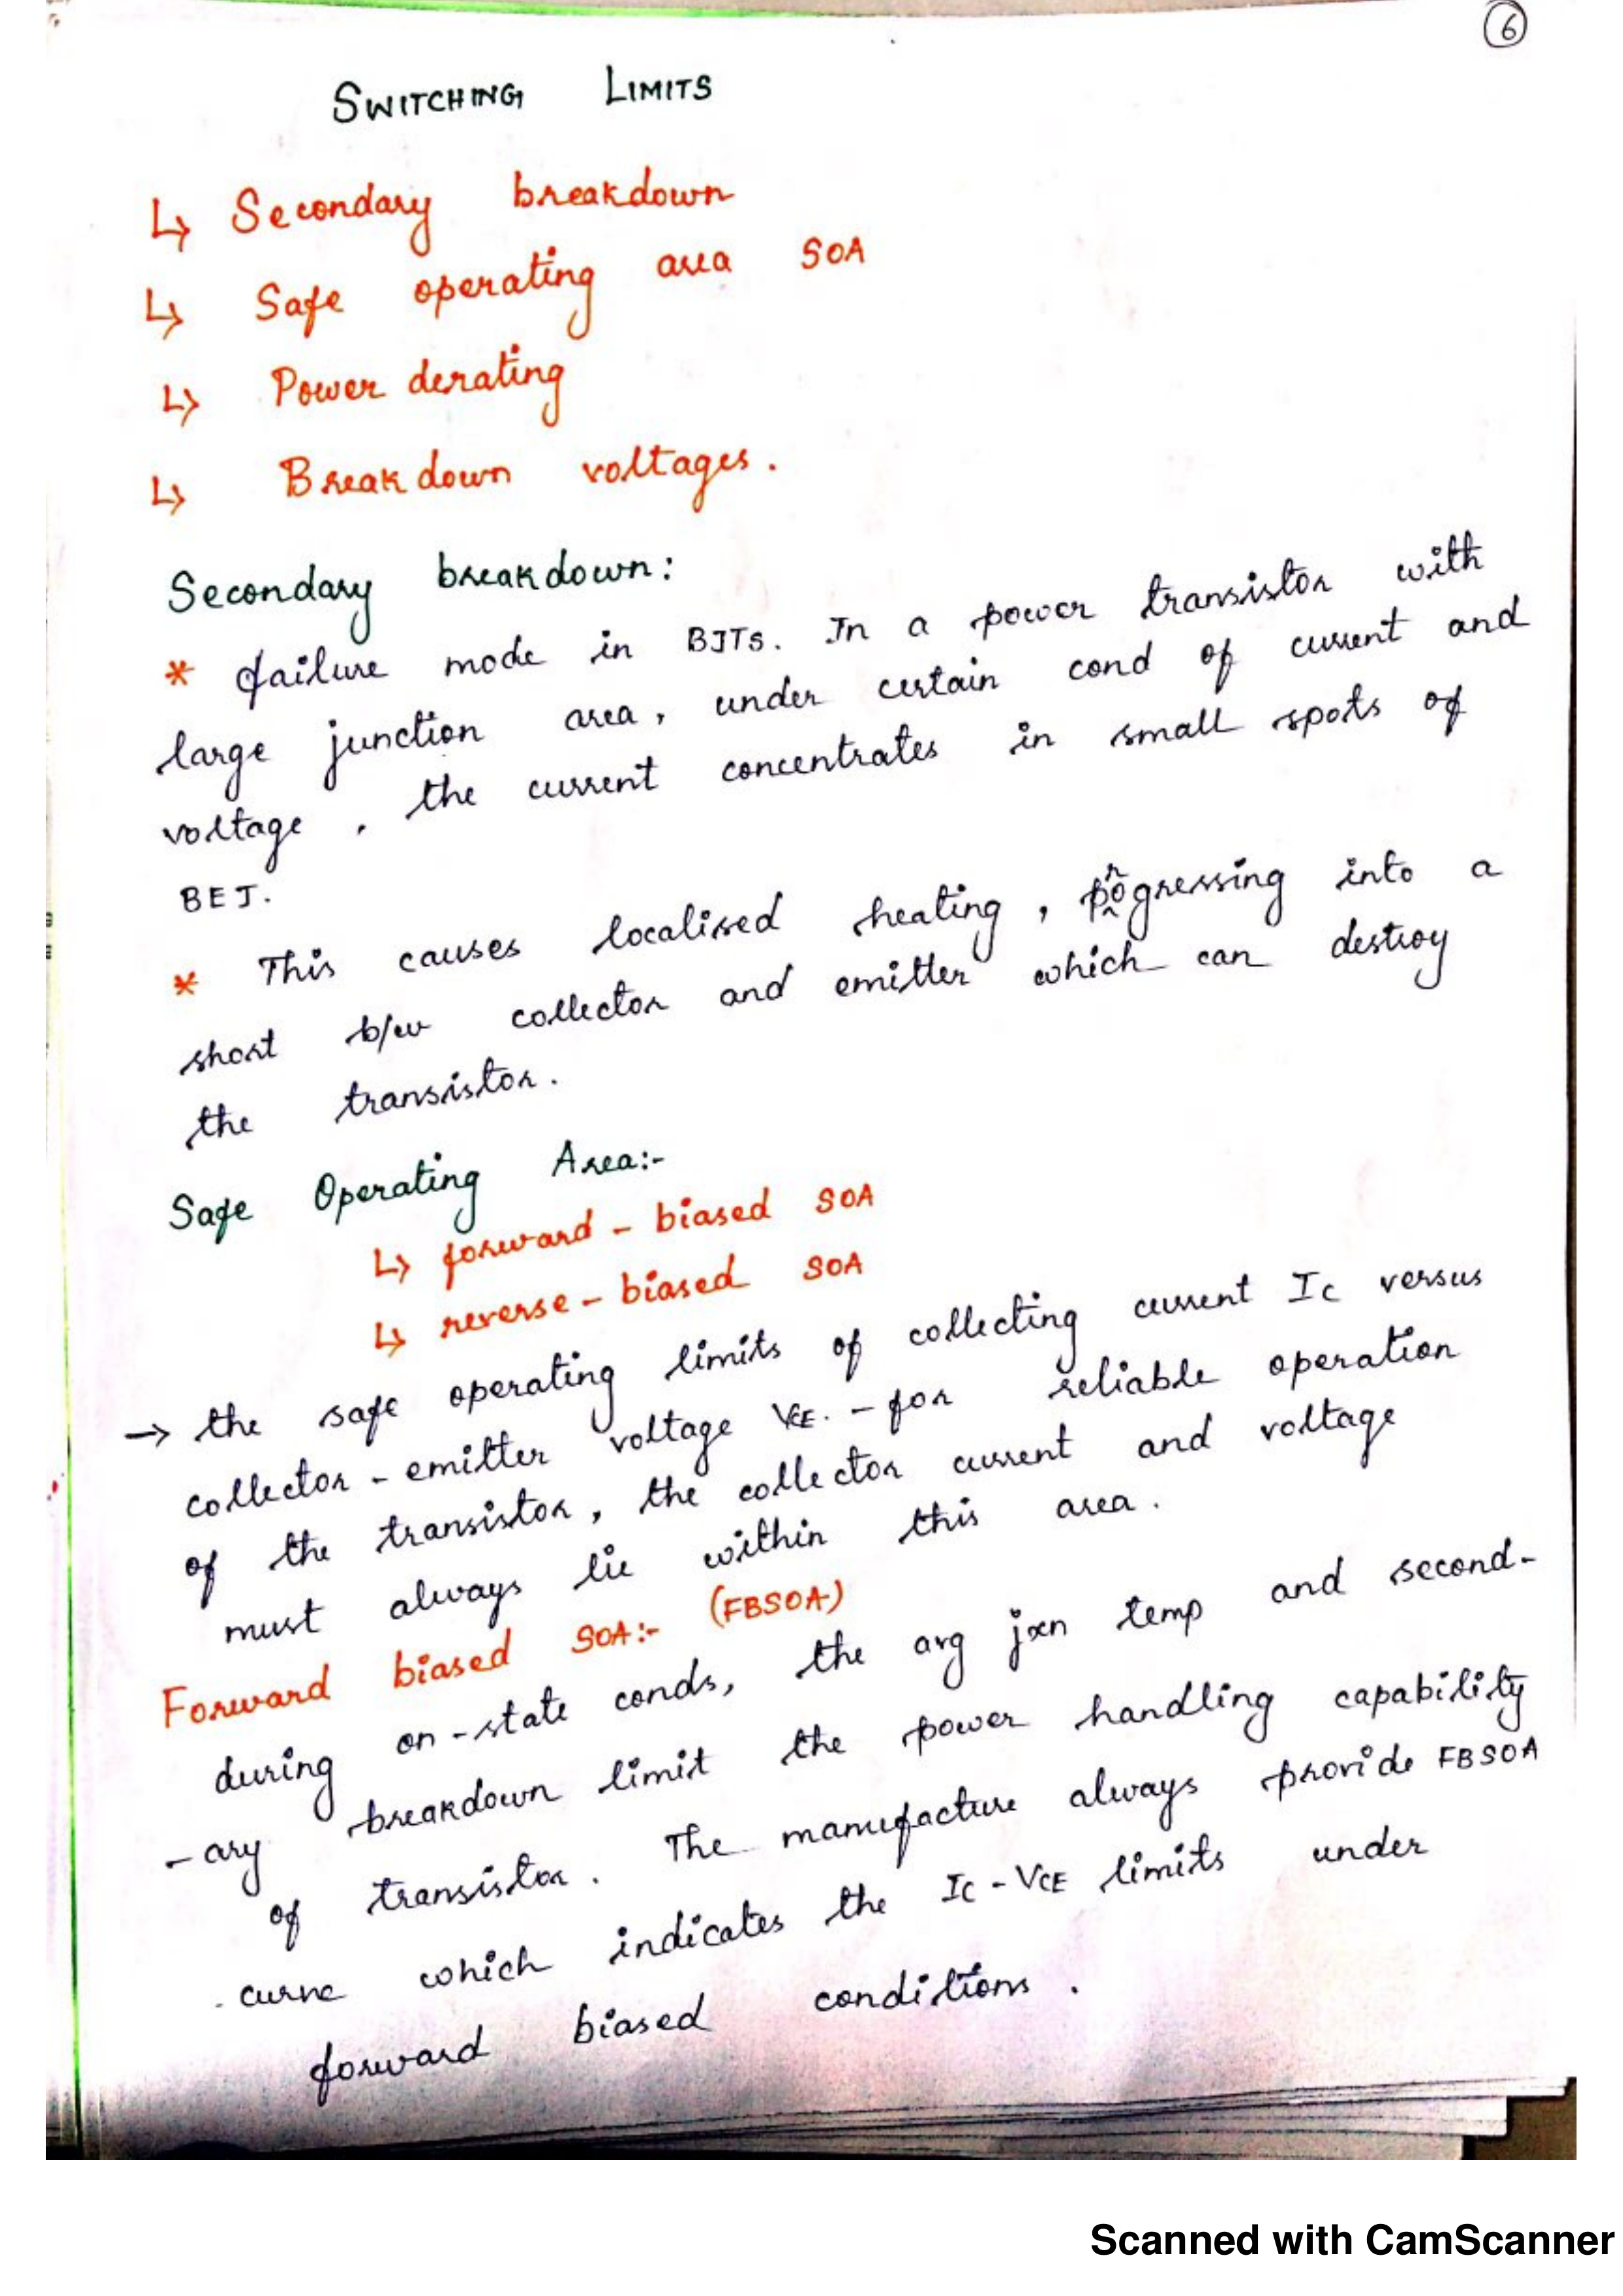 6
SWITCHING LIMITS
↳ Secondary breakdown
↳ Safe operating area SOA
↳ Power derating
↳ Breakdown voltages.
Secondary breakdown:
* failure mode in BJTs. In a power transistor with
large junction area, under certain cond of current and
voltage, the current concentrates in small spots of
BEJ.
* This causes localised heating, progressing into a
short b/w collector and emitter which can destroy
the transistor.
Safe Operating Area:-
↳ forward-biased SOA
↳ reverse-biased SOA
→ the safe operating limits of collecting current IC versus
collector-emitter voltage VCE. - for reliable operation
of the transistor, the collector current and voltage
must always lie within this area.
Forward biased SOA:- (FBSOA)
during on-state conds, the avg jxn temp and second-
-ary breakdown limit the power handling capability
of transistor. The manufacture always provide FBSOA
curve which indicates the IC-VCE limits under
forward biased conditions.
Scanned with CamScanner